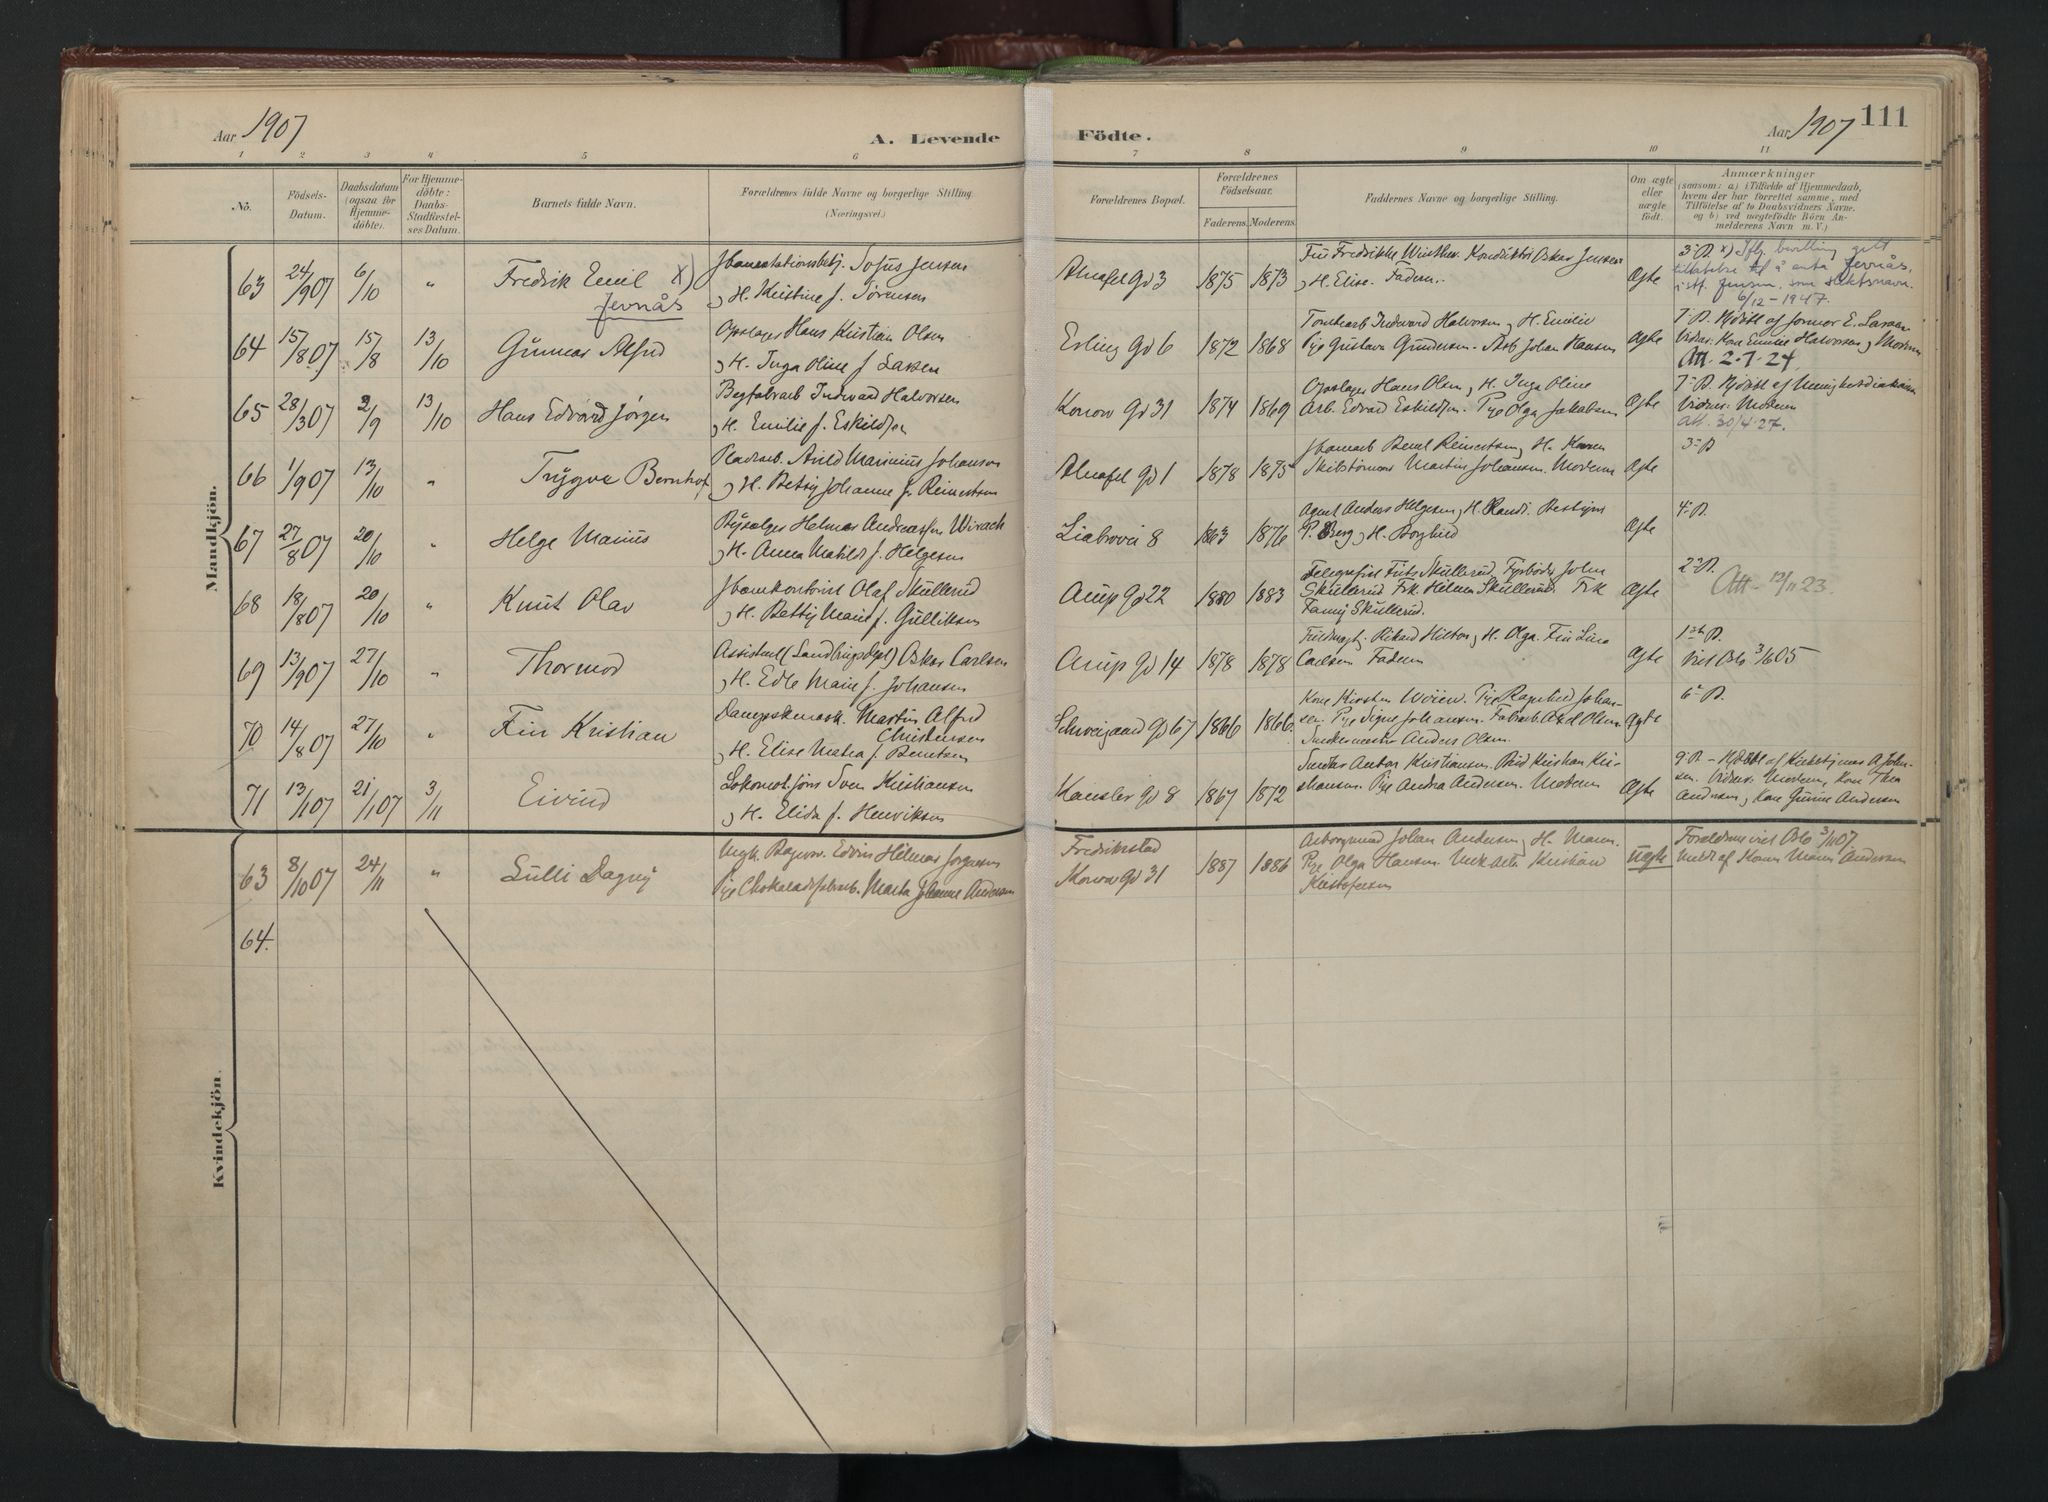 Aar 1907
A. Levende
Födte.
Aar 1907
111
1 2 3 4 5 6 7 8 9 10 11
No.
Födsels-
Datum.
Daabsdatum
(ogsaa for
Hjemme-
döbte).
For Hjemme-
döbte:
Daabs-
Stadfæstel-
ses Datum.
Barnets fulde Navn.
Forældrenes fulde Navne og borgerlige Stilling.
(Næringsvei.)
Forældrenes Bopæl.
Forældrenes
Födselsaar.
Faderens. Moderens.
Faddernes Navne og borgerlige Stilling.
Om ægte
eller
uægte
födt.
Anmærkninger
(saasom: a) i Tilfælde af Hjemmedaab,
hvem der har forrettet samme, med
Tilföielse af to Daabsvidners Navne.
og b) ved uægtefödte Börn An-
melderens Navn m. V.)
Mandkjön.
63 24/9 07 6/10 " Fredrik Emil x)
Jernås
Sofus Jensen
og H. Kristine f. Sørensen
Alnafet Gd 3 1875 1873
Frk Fredrikke Winther. Konduktör Oskar Jensen
og H. Elise. Faderen.
Ægte
3-P. x) Iflg. bevilling gitt
tillatelse til å anta Jernås,
i stf. Jensen, som slektsnavn.
6/12-1947.
64 15/8 07 15/8 13/10 Gunnar Alfred
Opslager Hans Kristian Olsen
og H. Inga Oline f. Larsen
Erling Gd 6 1872 1868
Tomtearb Indevard Halvorsen og H. Emilie
Pige Gustava Gundersen. Arb Johan Hansen
Ægte
7-P. Hjdöbt af Jormor E. Larsen
Vidner: Kone Emilie Halvorsen og Moderen
Att. 2-7-24.
65 28/3 07 2/9 13/10 Hans Edvard Jørgen
Indevard Halvorsen
og H. Emilie f. Eskildsen
Konow Gd 31 1874 1869
Opslager Hans Olsen og H. Inga Oline
Arb. Edvard Eskildsen. Pige Olga Jakobsen
Ægte
7-P. Hjdöbt af Menighedsdiakonen
Vidner: Moderen
Att. 30/4-27.
66 1/9 07 13/10 " Trygve Bernhof
Arild Marinius Johansen
og H. Betsy Johanne f. Reinertsen
Alnafet Gd 1 1878 1875
Bernt Reinertsen og H. Karen
Martin Johansen. Moderen
Ægte
3-P
67 27/8 07 20/10 " Helge Marius
Helmar Andreassen Wirach
og H. Anna Matilde f. Helgesen
Liabrovei 8 1863 1876
Agent Anders Helgesen og H. Randi. Bestyrer
P. Berg og H. Borghild
Ægte
4-P.
68 18/8 07 20/10 " Knut Olav
Olaf Skullerud
og H. Betty Marie f. Gulliksen
Arup Gd 22 1880 1883
Telegrafist Frits Skullerud. Fyrböder John
Skullerud. Frk. Helene Skullerud. Frk
Fanny Skullerud.
Ægte
2-P.
Att - 12/11 23.
69 13/9 07 27/10 " Thormod
Assistent (Landbrugsdept) Oskar Carlsen
og H. Edle Marie f. Johansen
Arup Gd 14 1878 1878
Rikard Hilton og H. Olga. Frk Lina
Carlsen. Faderen
Ægte
1ste P.
viet Oslo 3/6 05
70 14/8 07 27/10 " Fin Kristian
Martin Alfred
Christensen
og H. Elise Matea f. Berntsen
Schweigaard Gd 67 1866 1866.
Kone Kirsten Wøien. Pige Ragnhild Johan-
sen. Pige Signe Johansen. Fabrarb Axel Olsen.
Snedkermester Anders Olsen.
Ægte
6-P.
71 13/1 07 21/1 07 3/11 Eivind
Sven Kristiansen
og H. Elida f. Henriksen
Kanslér Gd 8 1867 1872
Anton Kristiansen. Kristian Kri-
stiansen. Pige Andra Andersen. Moderen
Ægte
9-P - Hjdöbt af Kirketjener A Johan-
sen. Vidner: Moderen, Kone Thea
Andersen og Kone Gunne Andersen
Kvindekjön.
63 8/10 07 24/11 " Lulli Dagny
Ungk. Bagersv. Edvin Hilmar Jørgensen
Pige Chokoladefabrarb. Marta Johanne Andersen
Fredrikstad
Konow Gd 31 1887 1886
Johan Andersen og H. Maren.
Pige Olga Hansen. Kristian
Kristofersen
Uægte
Forældrene viet Oslo 3/11 07
Meldt af Konen Maren Andersen
64.